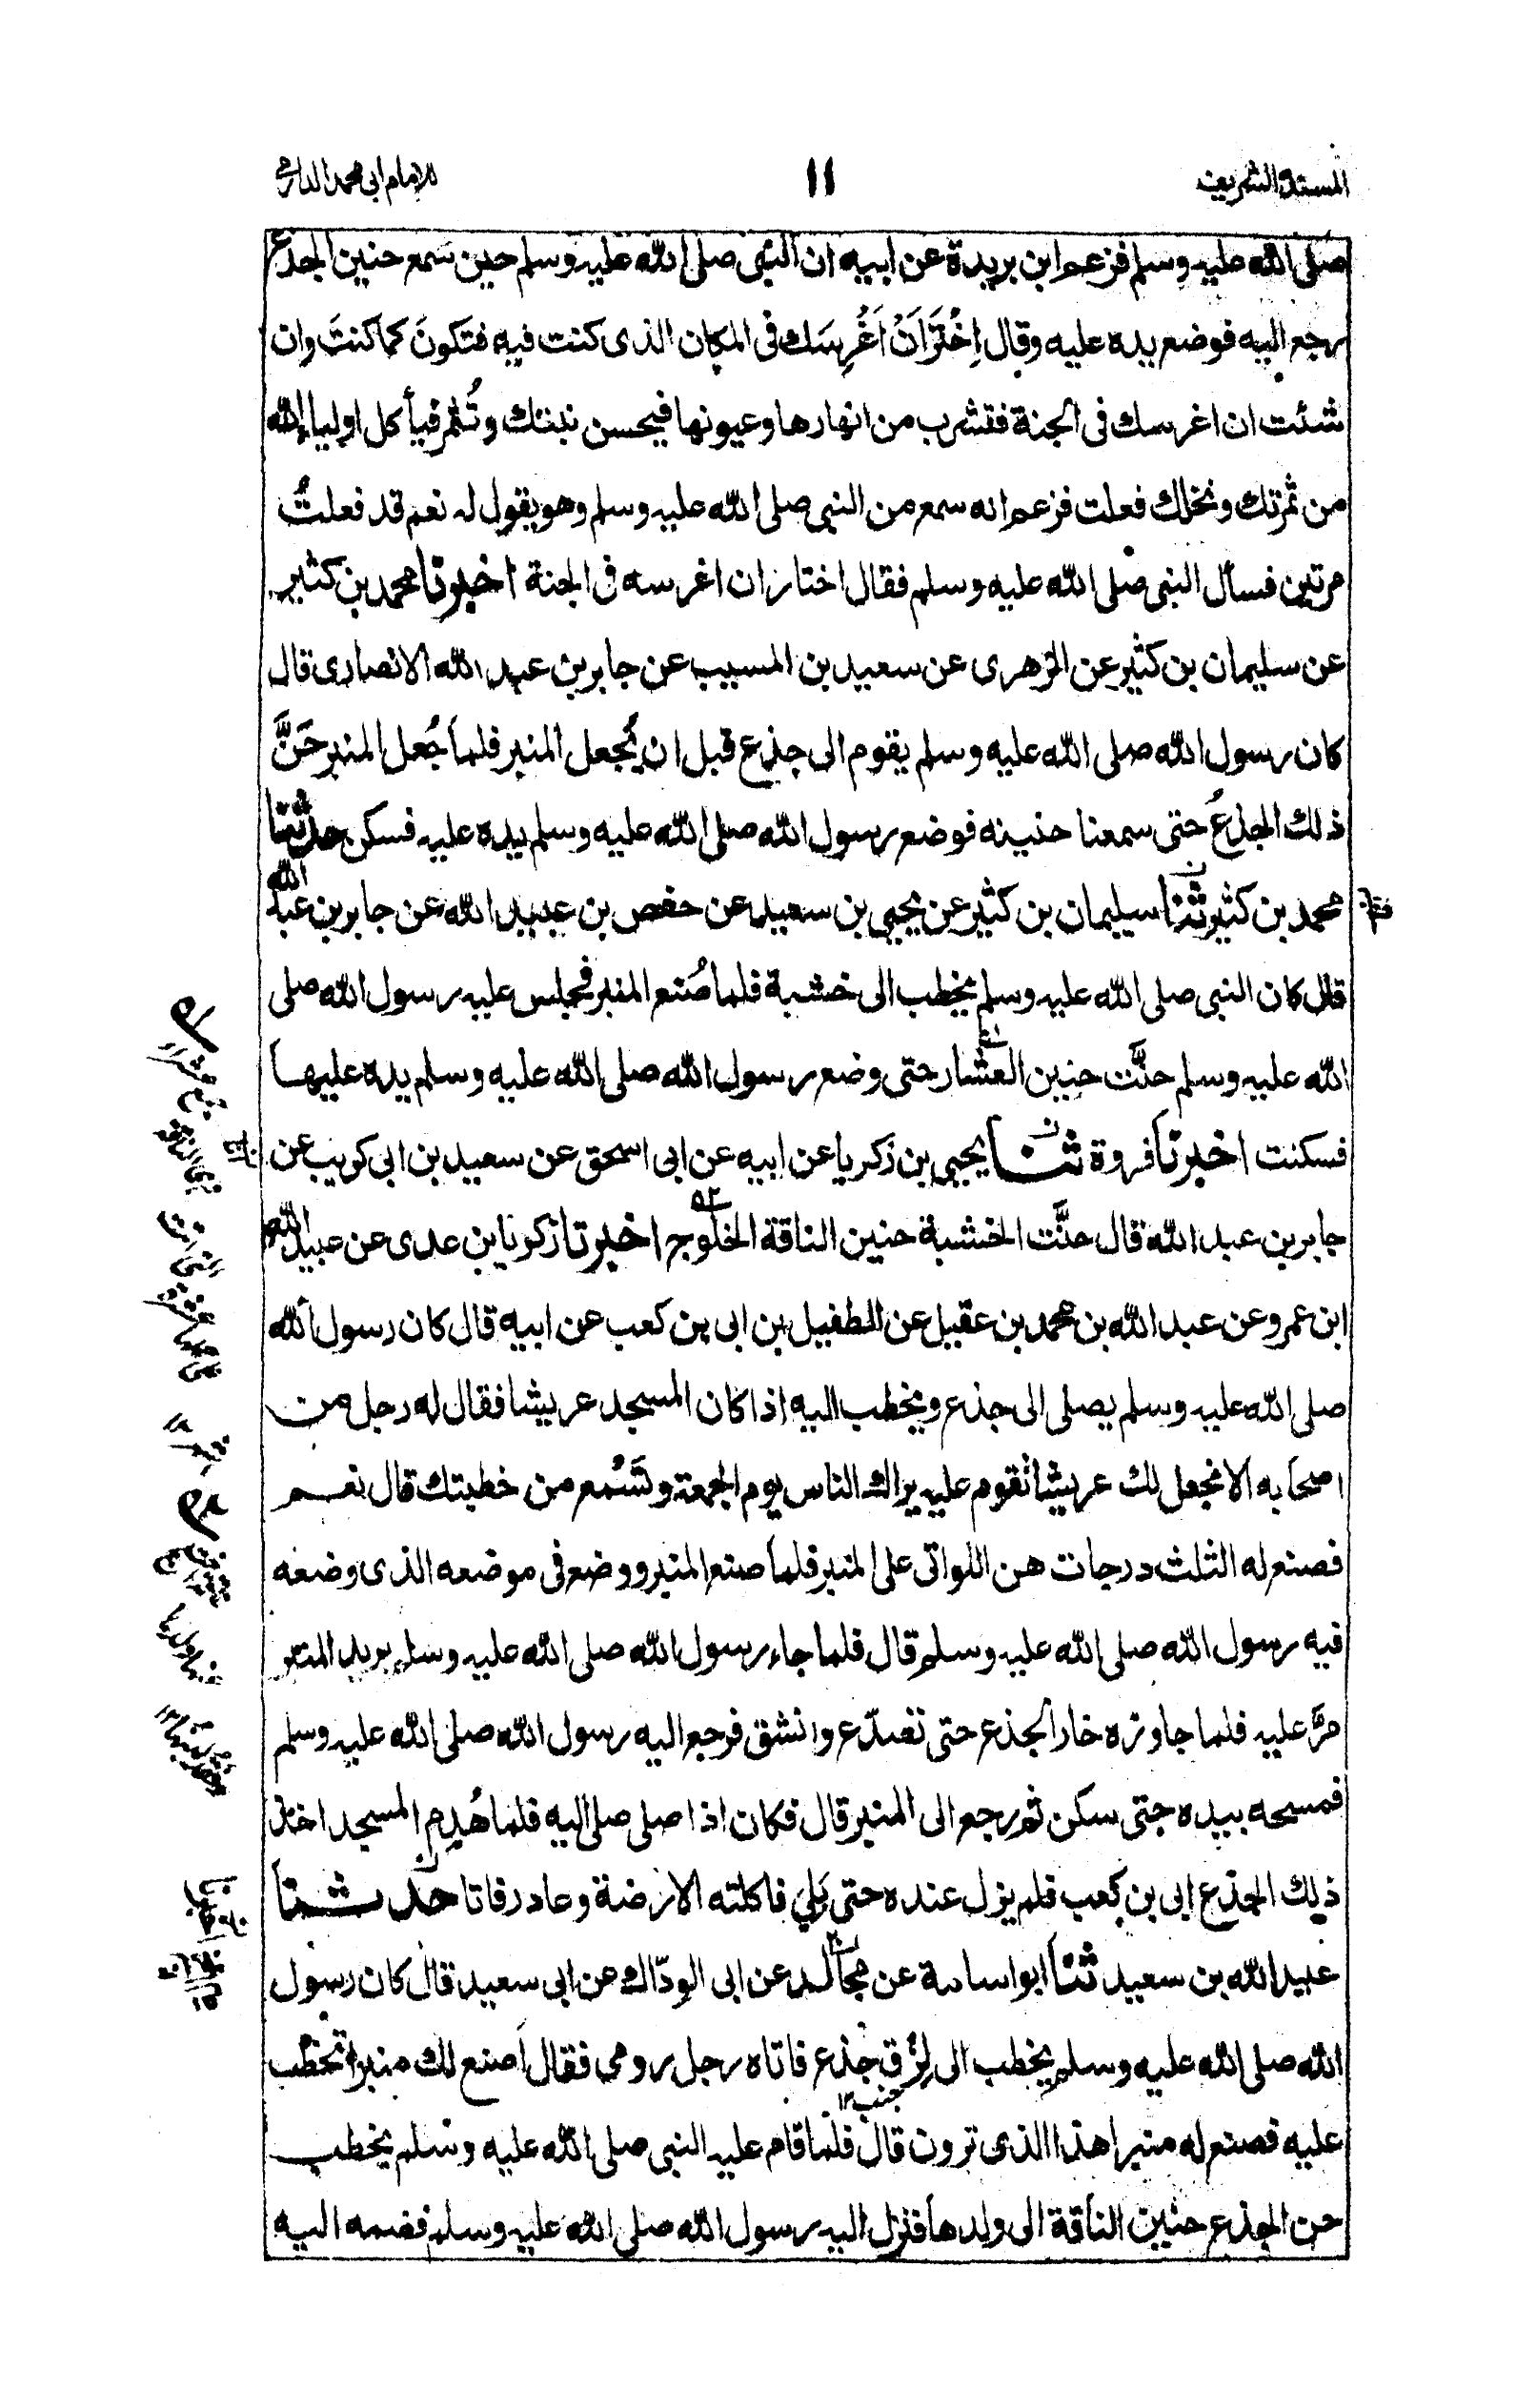 المسند الشريف
١١
للإمام ابى محمد الدارمى
صلى الله عليه وسلم فزعم ابن بريدة عن ابيه ان النبى صلى الله عليه وسلم حين سمع حنين الجذع
رجع اليه فوضع يده عليه وقال اِخْتَرْ اَنْ اَغْرِسَك فى المكان الذى كنت فيه فتكونَ كما كنتَ وان
شئت ان اغرسك فى الجنة فتشرب من انهارها وعيونها فيحسن نبتتك وتُثمر فيأكل اولياء الله
من ثمرتك ونخلك فعلت فزعم انه سمع من النبى صلى الله عليه وسلم وهو يقول له نعم قد فعلتُ
مرتين فسأل النبى صلى الله عليه وسلم فقال اختار ان اغرسه فى الجنة اخبرنا محمد بن كثير
عن سليمان بن كثير عن الزهرى عن سعيد بن المسيب عن جابر بن عبد الله الانصارى قال
كان رسول الله صلى الله عليه وسلم يقوم الى جذع قبل ان يُجعل المنبر فلما جُعل المنبر حَنَّ
ذلك الجذعُ حتى سمعنا حنينه فوضع رسول الله صلى الله عليه وسلم يده عليه فسكن حدثنا
محمد بن كثير ثنا سليمان بن كثير عن يحيى بن سعيد عن حفص بن عبيد الله عن جابر بن عبد الله
قال كان النبى صلى الله عليه وسلم يخطب الى خشبة فلما صُنع المنبر فجلس عليه رسول الله صلى
الله عليه وسلم حنَّت حنين العشار حتى وضع رسول الله صلى الله عليه وسلم يده عليها
فسكنت اخبرنا فروة ثنا يحيى بن زكريا عن ابيه عن ابى اسحق عن سعيد بن ابى كريب عن
جابر بن عبد الله قال حنَّت الخشبة حنين الناقة الخلوج اخبرنا زكريا بن عدى عن عبيد الله
ابن عمرو عن عبد الله بن محمد بن عقيل عن الطفيل بن ابى بن كعب عن ابيه قال كان رسول الله
صلى الله عليه وسلم يصلى الى جذع ويخطب اليه اذا كان المسجد عريشا فقال له رجل من
اصحابه الا نجعل لك عريشا تقوم عليه يراك الناس يوم الجمعة وتَسْمع من خطبتك قال نعم
فصنع له الثلث درجات هن اللواتى على المنبر فلما صنع المنبر ووضع فى موضعه الذى وضعه
فيه رسول الله صلى الله عليه وسلم قال فلما جاء رسول الله صلى الله عليه وسلم يريد المنبر
مرَّ عليه فلما جاوزه خار الجذع حتى تصدّع وانشق فرجع اليه رسول الله صلى الله عليه وسلم
فمسحه بيده حتى سكن ثم رجع الى المنبر قال فكان اذا صلى صلى اليه فلما هُدِم المسجد اخذ
ذلك الجذع ابى بن كعب فلم يزل عنده حتى بَلِىَ فاكلته الارضة وعاد رفاتا حدثنا
عبيد الله بن سعيد ثنا ابو اسامة عن مجالد عن ابى الودّاك عن ابى سعيد قال كان رسول
الله صلى الله عليه وسلم يخطب الى لِزْق جذع فاتاه رجل رومى فقال اصنع لك منبرا تخطب
جنب١٢
عليه فصنع له منبرا هذا الذى ترون قال فلما قام عليه النبى صلى الله عليه وسلم يخطب
حن الجذع حنين الناقة الى ولدها فنزل اليه رسول الله صلى الله عليه وسلم فضمه اليه